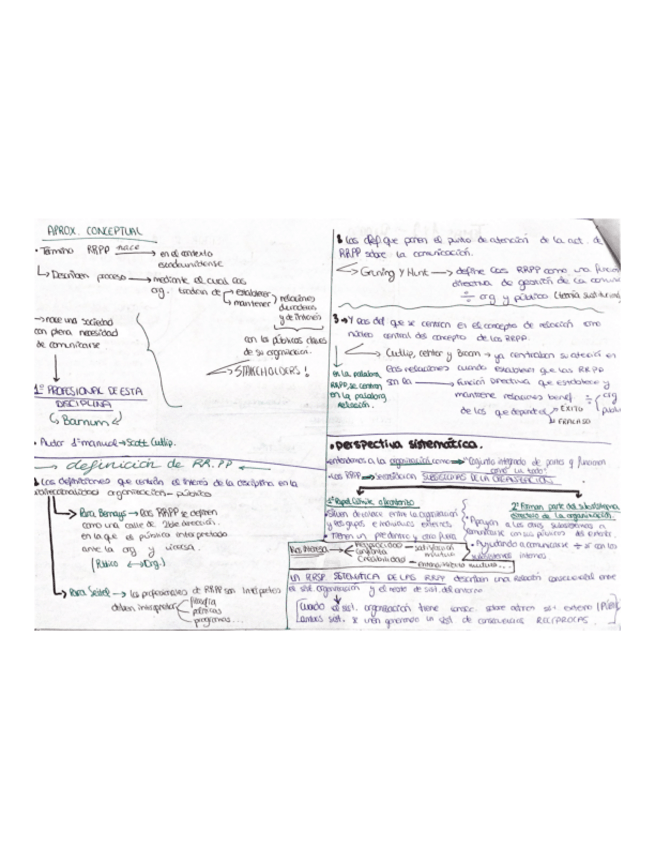 APROX. CONCEPTUAL
• Término RRPP nace → en el contexto
estadounidense
↳ Describen proceso → mediante el cual las
org. tratan de establecer
mantener
relaciones
duraderas
y de interés
con los públicos claves
de su organización.
→ STAKEHOLDERS!
→ nace una sociedad
con plena necesidad
de comunicarse
1º PROFESIONAL DE ESTA
DISCIPLINA
↳ Barnum
• Autor 1º manual → Scott Cutlip.
→ definición de RR.PP
1. Las definiciones que centran el interés de la disciplina en la
organización - público
→ Para Bernays → Las RRPP se definen
como una calle de doble dirección.
en la que el público interpretado
ante la org y viversa.
(Público ↔ Org.)
→ Para Seitel → los profesionales de RRPP son intérpretes
deben interpretar
filosofía
políticas
programas...
2. Las def que ponen el punto de atención de la act. de
RRPP sobre la comunicación.
Grunig y Hunt → define las RRPP como una función
directiva de gestión de la comunic
÷ org y público
3 → Y las def que se centran en el concepto de relación como
núcleo central del concepto de las RRPP.
→ Cutlip, Center y Broom → ya centraban su atención en
las relaciones cuando establecen que las RRPP
son la → función directiva que establece y
mantiene relaciones benef ÷ org
de los que depende el
ÉXITO
FRACASO
en la palabra
RRPP, se centran
en la palabra
relación.
• perspectiva sistemática.
entendemos a la organización como → "Conjunto integrado de partes q funcionan
como un todo"
• Las RRPP → SUBSISTEMAS DE LA ORGANIZACIÓN
1º Papel
• Sirven de enlace entre la organización
y los grupos e individuos externos
• Tienen un pie dentro y otro fuera
2º Forman parte del subsistema
directivo de la organización.
• Apoyan a los otros subsistemas a
comunicarse con sus públicos del exterior.
• Ayudando a comunicarse ÷ sí con los
subsistemas internos
Reciprocidad
Confianza
Credibilidad
satisfacción
mutua
entendimiento mutuo...
LA PERSP SISTEMÁTICA DE LAS RRPP describen una relación consecuencial entre
el sist. organización y el resto de sist. del entorno
Cuando el sist. organización tiene consec. sobre otros sist externo
ambos sist. se unen generando un sist. de consecuencias RECÍPROCAS.